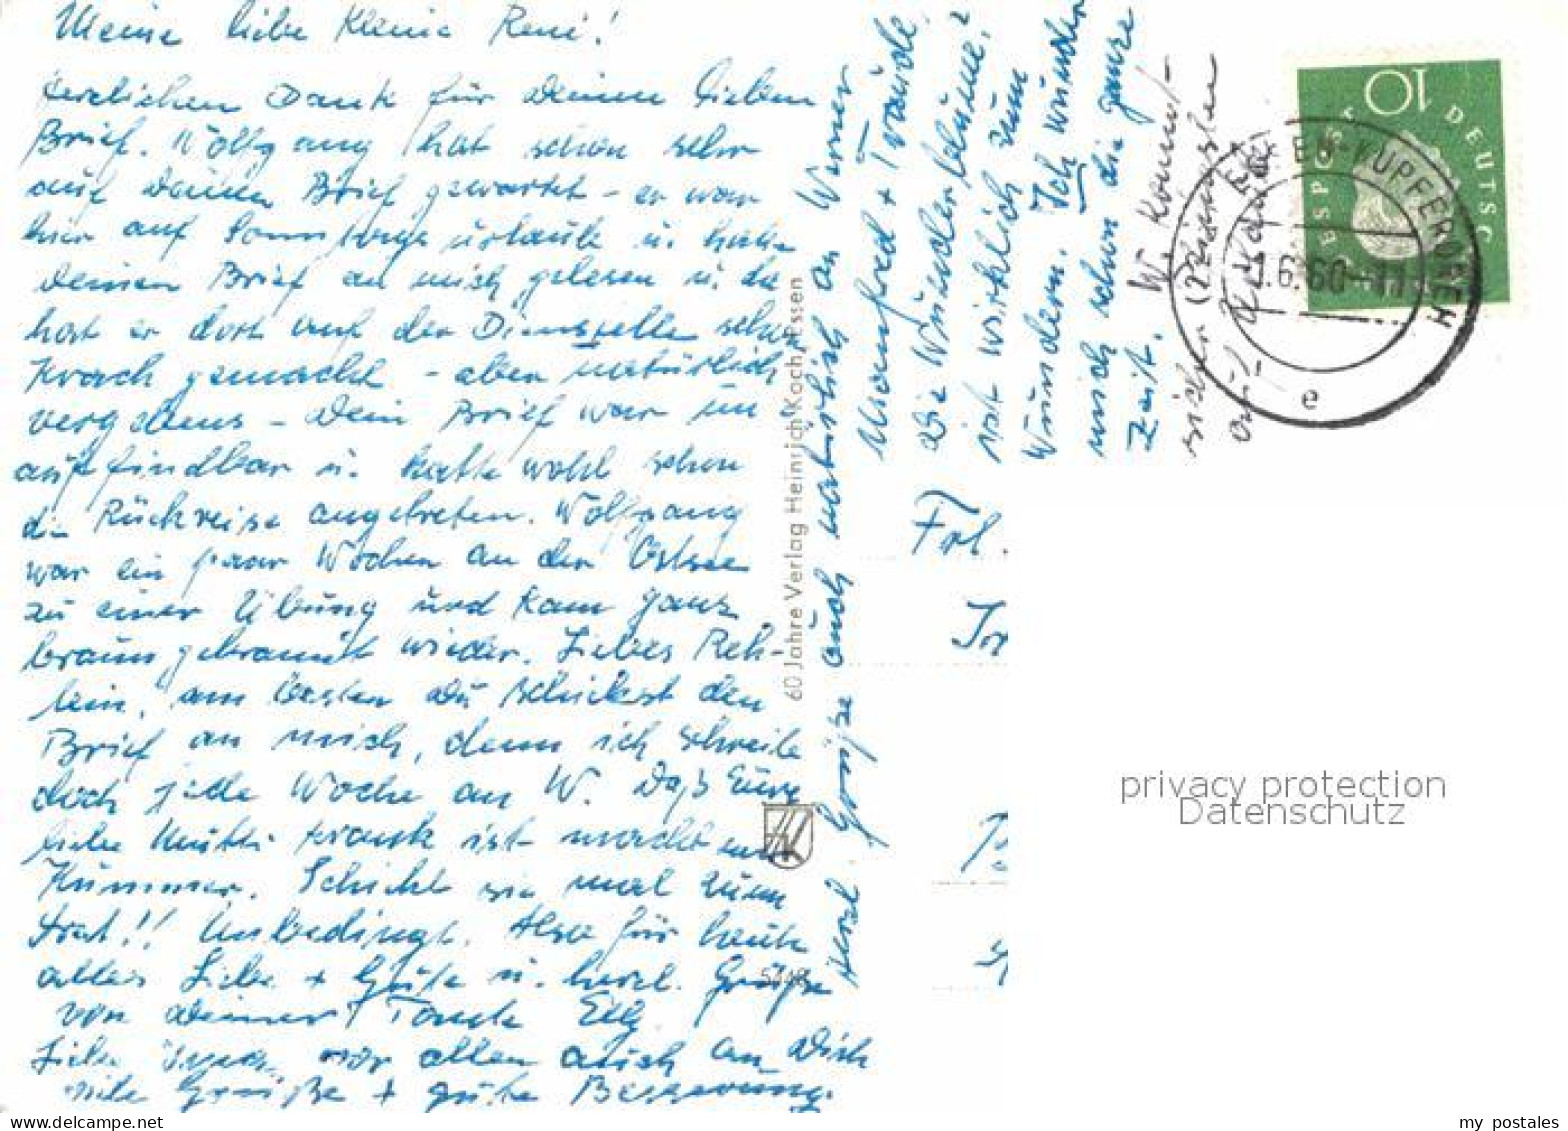 Meine liebe kleine René!
Herzlichen Dank für Deinen lieben
Brief. Wolfgang hat schon sehr
auf Deinen Brief gewartet - er war
hier auf Sonntagsurlaub u. habe
Deinen Brief an mich gelesen u. da
hat er dort auf der Dienststelle schon
Krach gemacht - aber natürlich
vergebens - Dein Brief war un
auffindbar u. hatte wohl schon
die Rückreise angetreten. Wolfgang
war ein paar Wochen an der Ostsee
zu einer Übung und kam ganz
braun gebrannt wieder. Liebes Reh-
lein, am besten Du schickst den
Brief an mich, denn ich schreibe
doch jede Woche an W. Daß Eure
liebe Mutti krank ist macht mir
Kummer. Schickt sie mal zum
Arzt!! Unbedingt. Also für heute
alles Liebe + Gute u. herzl. Grüße
von Deiner Tante Elly
Liebe vor allem auch an Dich
viele Grüße + gute Besserung.
Herzl Grüße auch natürlich an Werner
Manfred + Traude
Die Wunderblume?
ist wirklich zum
Wundern. Ich wunder
mich schon die ganze
Zeit.
W. kommt
sicher
60 Jahre Verlag Heinrich Koch, Essen
HK
Frl.
DEUTSC
ESPOST
10
ESSEN-KUPFERDREH
1.6.60-11
e
privacy protection
Datenschutz
www.delcampe.net
my_postales